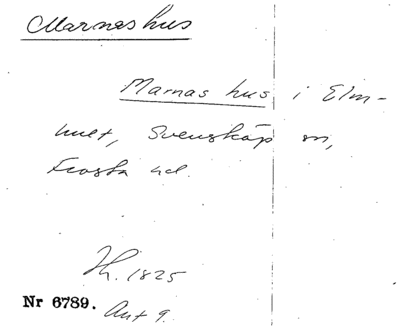 Marnas hus
Marnas hus i Elm-
hult, Svensköp sn,
Frosta hd.
Th. 1825
Nr 6789. Ant 9.